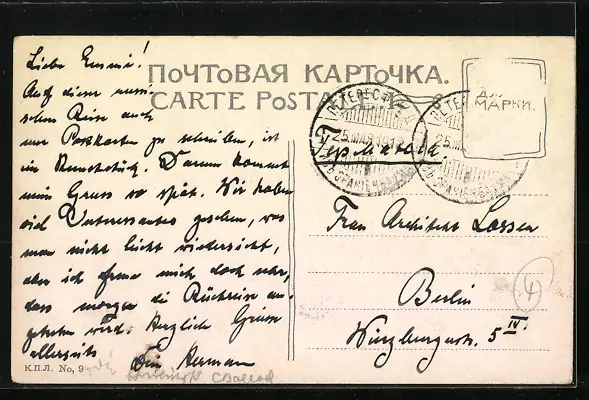 Liebe Emmi!
Auf dieser russi-
schen Reise auch
nur Postkarten zu schreiben, ist
ein Kunststück. Darum kommt
mein Gruss so spät. Wir haben
viel Interessantes gesehen, was
man nicht leicht wiedersieht,
aber ich freue mich doch sehr,
dass morgen die Rückreise an-
getreten wird. Herzliche Grüsse
allerseits Dein Herman
ПОЧТОВАЯ КАРТОЧКА.
CARTE POSTALE
ДЛЯ
МАРКИ.
25 МАЯ
25
Германия
Frau Architekt Lossen
Berlin
Würzburgerstr. 5 IV.
4
К.П.Л. No, 9